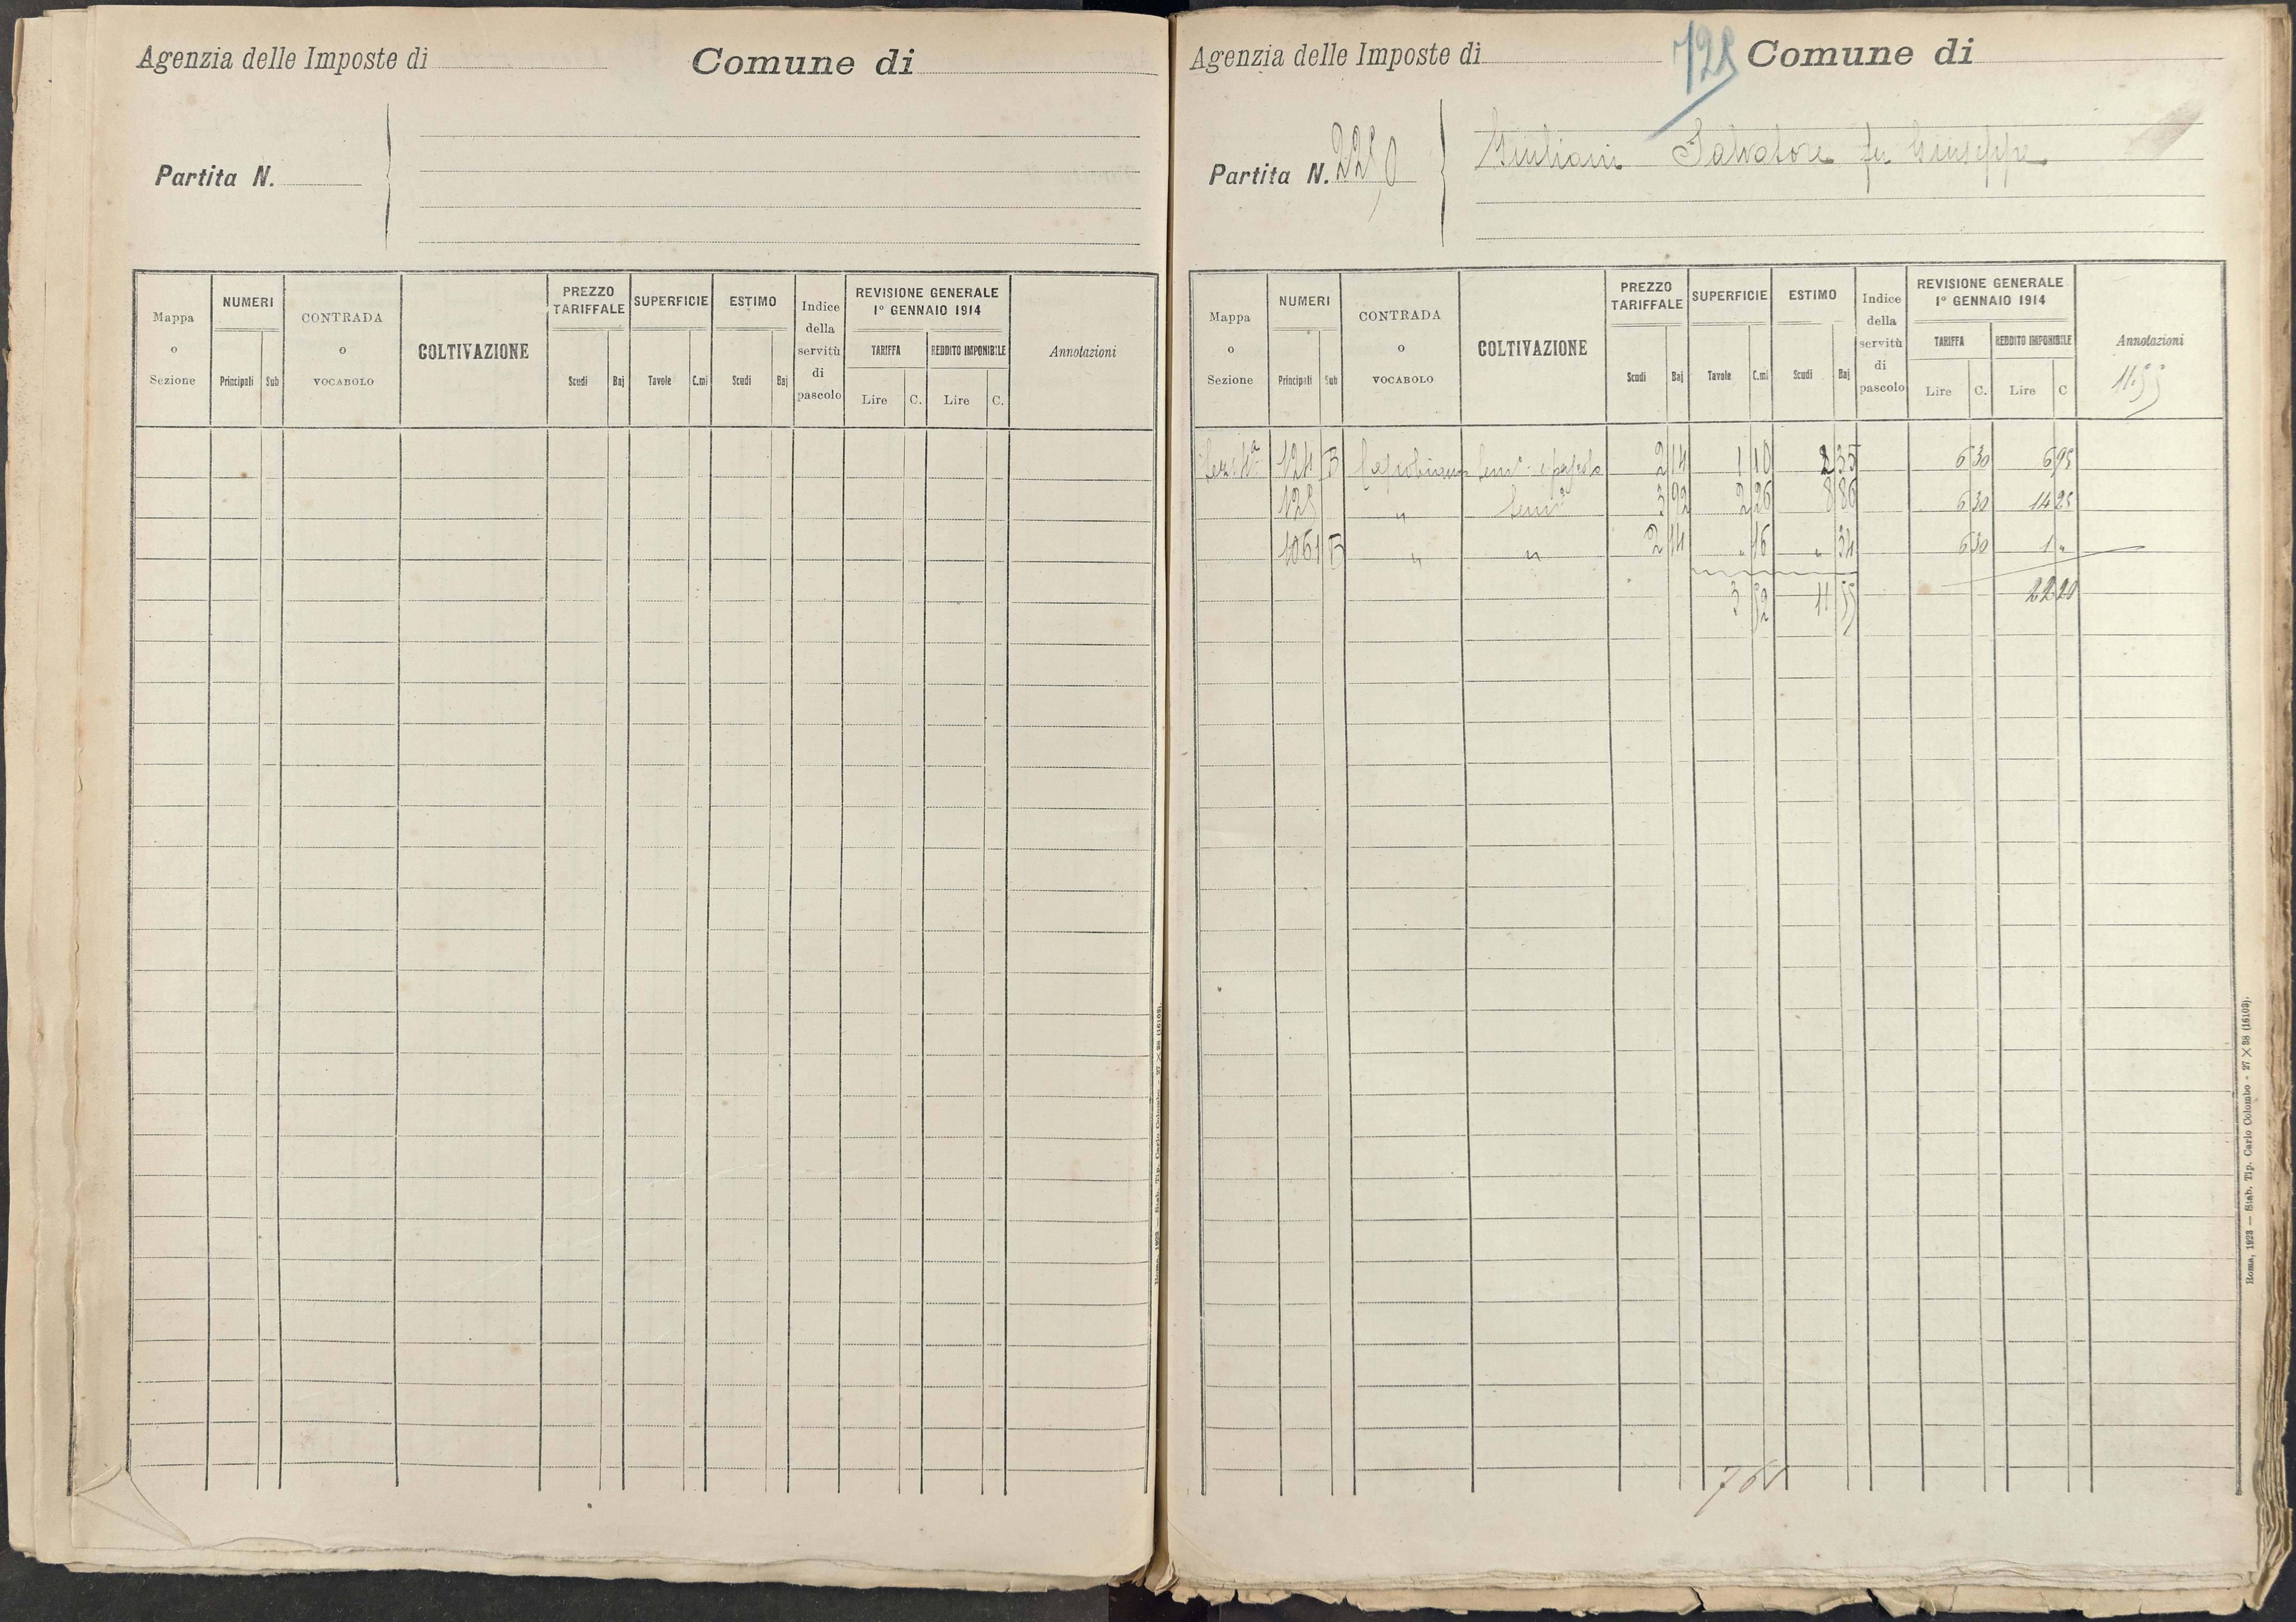 Agenzia delle Imposte di
Comune di
Partita N.
Mappa o Sezione
NUMERI
Principali
Sub
CONTRADA o VOCABOLO
COLTIVAZIONE
PREZZO TARIFFALE
Scudi
Baj
SUPERFICIE
Tavole
C.mi
ESTIMO
Scudi
Baj
Indice della servitù di pascolo
REVISIONE GENERALE
1° GENNAIO 1914
TARIFFA
Lire
C.
REDDITO IMPONIBILE
Lire
C.
Annotazioni
Roma, 1923 — Stab. Tip. Carlo Colombo - 27 X 38 (16103).
Agenzia delle Imposte di
725
Comune di
Partita N. 2250
Giuliani Salvatore fu Giuseppe
Mappa o Sezione
NUMERI
Principali
Sub
CONTRADA o VOCABOLO
COLTIVAZIONE
PREZZO TARIFFALE
Scudi
Baj
SUPERFICIE
Tavole
C.mi
ESTIMO
Scudi
Baj
Indice della servitù di pascolo
REVISIONE GENERALE
1° GENNAIO 1914
TARIFFA
Lire
C.
REDDITO IMPONIBILE
Lire
C
Annotazioni
11.55
Sez. 4a 124 B 2 14 1 10 2 35 6 30 6 95
125 " Semo 3 92 2 26 8 86 6 30 14 25
1061 B " " 2 14 " 16 " 34 6 30 1 "
3 52 11 55 22 20
761
Roma, 1923 — Stab. Tip. Carlo Colombo - 27 X 38 (16103).